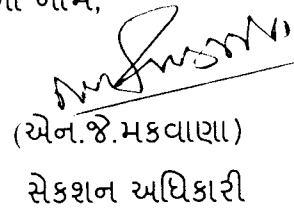 નામ,
(એન.જે.મકવાણા)
સેકશન અધિકારી